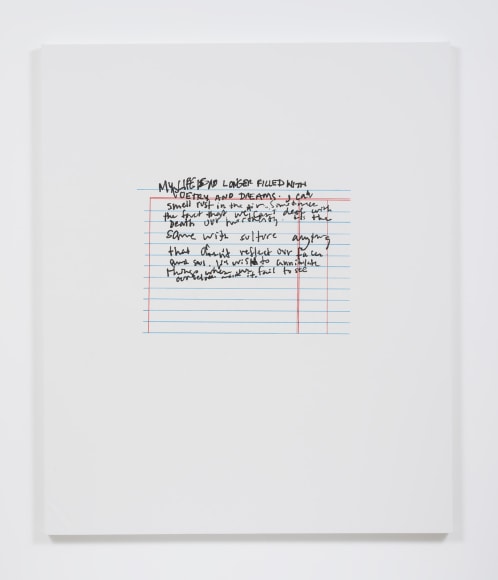 MY LIFE IS NO LONGER FILLED WITH
POETRY AND DREAMS. I can
smell rust in the air. Sometimes
the fact that we can't deal with
Death our is the
same with culture anything
that doesn't reflect our faces
and soul. We wish to annihilate
things when we fail to see
ourselves inside it.